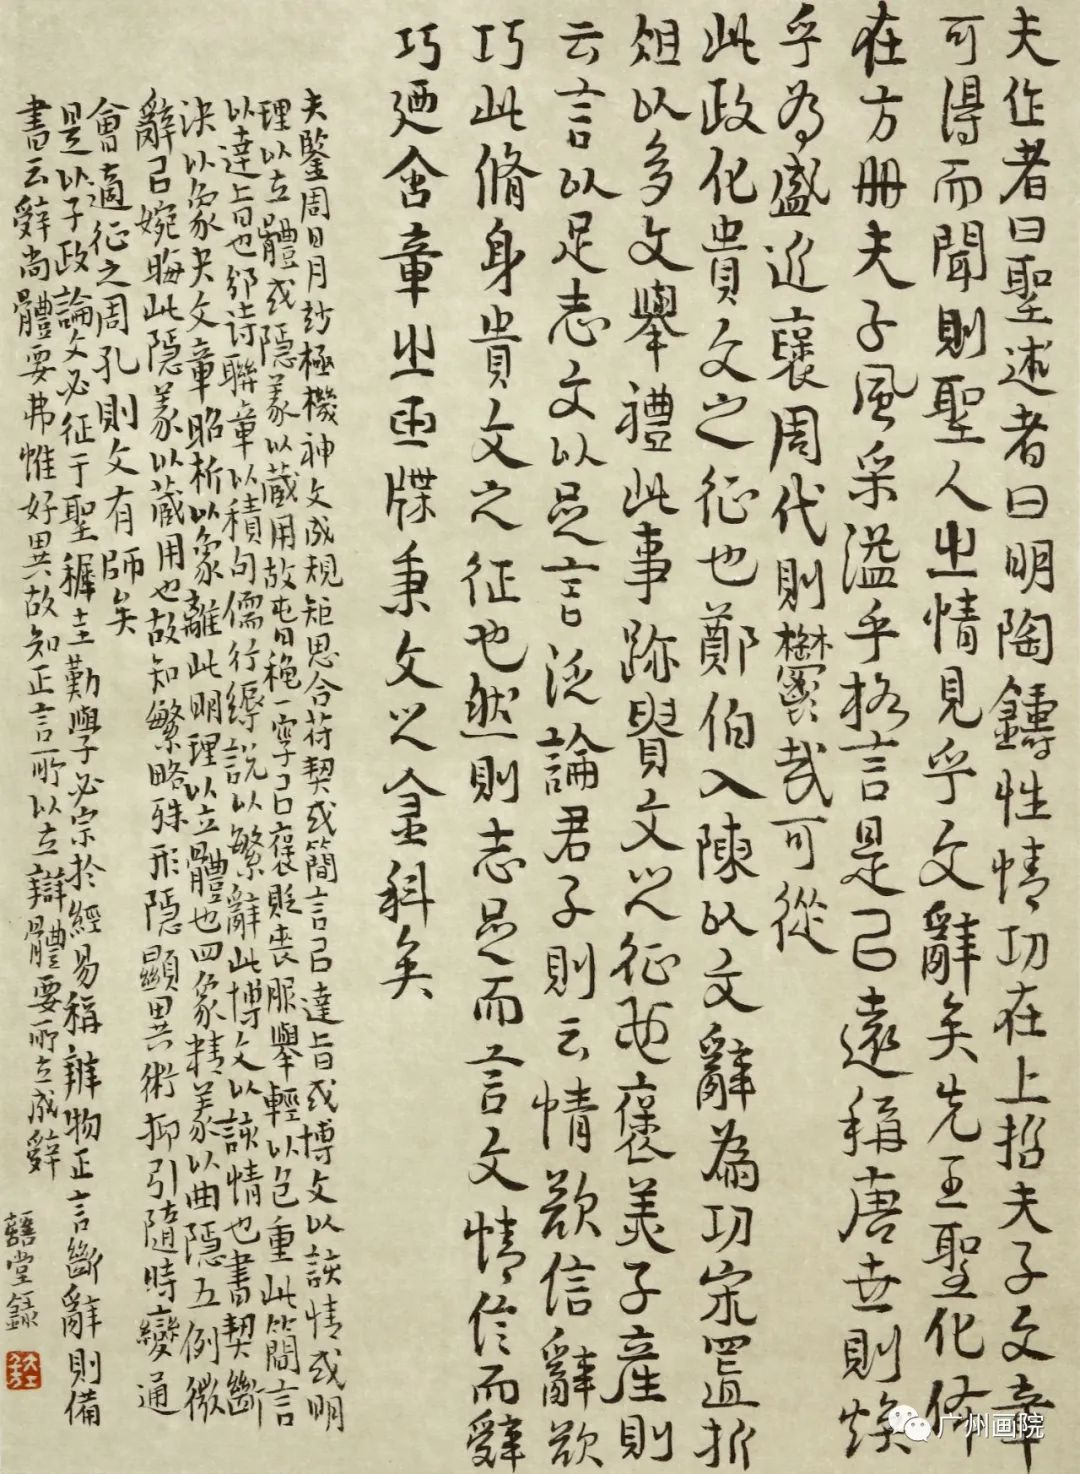 夫作者曰聖述者曰明陶鑄性情功在上哲夫子文章
可得而聞則聖人之情見乎文辭矣先王聖化佈
在方册夫子風采溢乎格言是已遠稱唐世則煥
乎為盛近褒周代則鬱哉可從
此政化貴文之征也鄭伯入陳以文辭為功宋置折
俎以多文舉禮此事跡貴文之征也褒美子產則
云言以足志文以足言泛論君子則云情欲信辭欲
巧此脩身貴文之征也然則志足而言文情信而辭
巧廼含章之玉牒秉文之金科矣
夫鑒周日月妙極機神文成規矩思合符契或簡言以達旨或博文以該情或明
理以立體或隱義以藏用故春秋一字以褒貶喪服舉輕以包重此簡言
以達旨也邠詩聯章以積句儒行縟說以繁辭此博文以該情也書契斷
決以象夬文章昭析以象離此明理以立體也四象精義以曲隱五例微
辭以婉晦此隱義以藏用也故知繁略殊形隱顯異術抑引隨時變通
會適征之周孔則文有師矣
是以子政論文必征于聖稺圭勸學必宗於經易稱辨物正言斷辭則備
書云辭尚體要弗惟好異故知正言所以立辯體要所以成辭
堂錄
广州画院